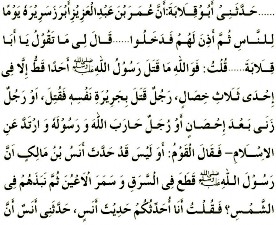 ......حَدَّثَنِي أَبُو قِلَابَةَ: أَنَّ عُمَرَ بْنَ عَبْدِ الْعَزِيْزِ أَبْرَزَ سَرِيْرَهُ يَوْمًا
لِلنَّاسِ ثُمَّ أَذِنَ لَهُمْ فَدَخَلُوا......قَالَ لِى مَا تَقُوْلُ يَا أَبَا
قِلَابَةَ......قُلْتُ: فَوَاللهِ مَا قَتَلَ رَسُوْلُ اللهِ ﷺ أَحَدًا قَطُّ إِلَّا فِى
إِحْدٰى ثَلَاثِ خِصَالٍ، رَجُلٌ قَتَلَ بِجَرِيْرَةِ نَفْسِهِ فَقُتِلَ، أَوْ رَجُلٌ
زَنٰى بَعْدَ إِحْصَانٍ أَوْ رَجُلٌ حَارَبَ اللهَ وَ رَسُوْلَهُ وَ ارْتَدَّ عَنِ
الْاِسْلَامِ- فَقَالَ الْقَوْمُ: أَوَ لَيْسَ قَدْ حَدَّثَ أَنَسُ بْنُ مَالِكٍ أَنَّ
رَسُوْلَ اللهِ ﷺ قَطَعَ فِى السَّرَقِ وَ سَمَرَ الْاَعْيُنَ ثُمَّ نَبَذَهُمْ فِى
الشَّمْسِ؟ فَقُلْتُ أَنَا أُحَدِّثُكُمْ حَدِيْثَ أَنَسٍ، حَدَّثَنِى أَنَسٌ أَنَّ